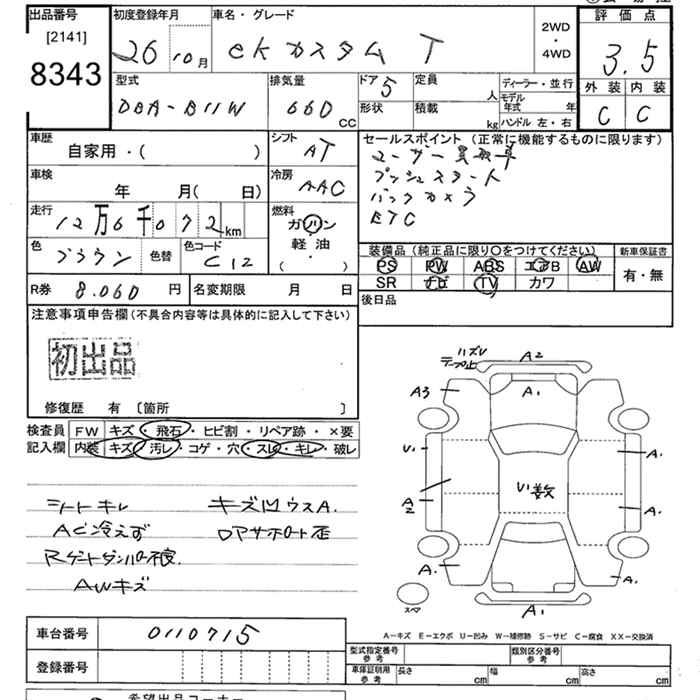 出品番号
[2141]
8343
初度登録年月
26 10月
車名・グレード
eKカスタム T
2WD
・
4WD
評価点
3.5
外装 内装
C C
型式
DBA-B11W
排気量
660 CC
ドア 5
形状
定員 人
積載 kg
ディーラー・並行
モデル年式 年
ハンドル 左・右
車歴
自家用・( )
シフト
AT
車検
年 月( 日)
冷房
AAC
走行
12万6千072km
燃料
ガソリン
軽油
( ・ )
色 ブラウン 色替
色コード C12
R券 8.060円
名変期限 月 日
セールスポイント(正常に機能するものに限ります)
ユーザー買取車
プッシュスタート
バックカメラ
ETC
装備品(純正品に限り○をつけてください)
PS PW ABS エアB AW
SR ナビ TV カワ
新車保証書
有・無
後日品
注意事項申告欄(不具合内容等は具体的に記入して下さい)
初出品
修復歴 有〔箇所 〕
検査員記入欄
FW キズ・飛石・ヒビ割・リペア跡・×要
内装 キズ・汚レ・コゲ・穴・スレ・キレ・破レ
シートキレ
AC冷えず
Rゲートダンパー不良.
AWキズ
キズ凹ウスA.
ロアサポート歪
ハズレ
テープ止
A2
A3
A.
U.
A.
A2
U.数
A.
A.
A.
A.
スペア
車台番号 0110715
登録番号
A-キズ E-エクボ U-凹み W-補修跡 S-サビ C-腐食 XX-交換済
型式指定番号 参考
類別区分番号 参考
車庫証明用 参考
長さ cm
幅 cm
高さ cm
希望出品コーナー